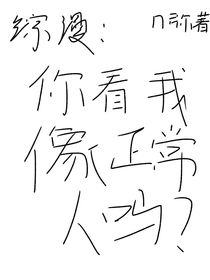 综漫： 几弥著
你看我
像正常
人吗？